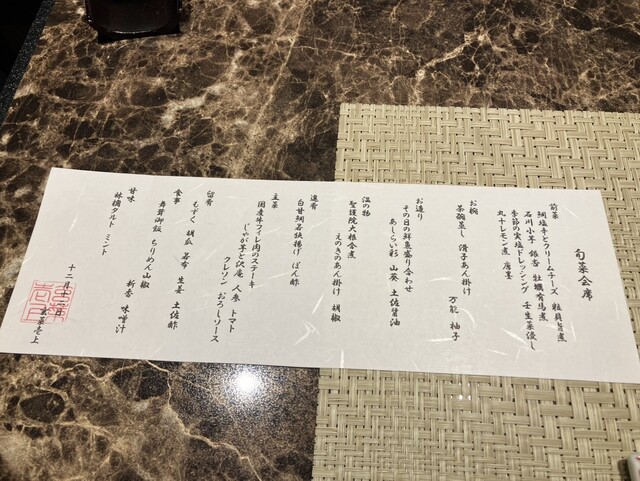 旬菜会席
前菜
鯛塩辛とクリームチーズ 粒貝旨煮
石川小芋 銀杏 牡蠣有馬煮
季節の実塩ドレッシング 壬生菜浸し
丸十レモン煮 唐墨
お椀
茶碗蒸し 滑子あん掛け
万能 柚子
お造り
その日の鮮魚盛り合わせ
あしらい彩 山葵 土佐醤油
温の物
聖護院大根含煮
えのきのあん掛け 胡椒
進肴
白甘鯛若狭揚げ ぽん酢
主菜
国産牛フィレ肉のステーキ
じゃが芋と沢庵 人参 トマト
クレソン おろしソース
留肴
もずく 胡瓜 若布 生姜 土佐酢
食事
舞茸御飯 ちりめん山椒
新香 味噌汁
甘味
林檎タルト ミント
十二月十二日
上